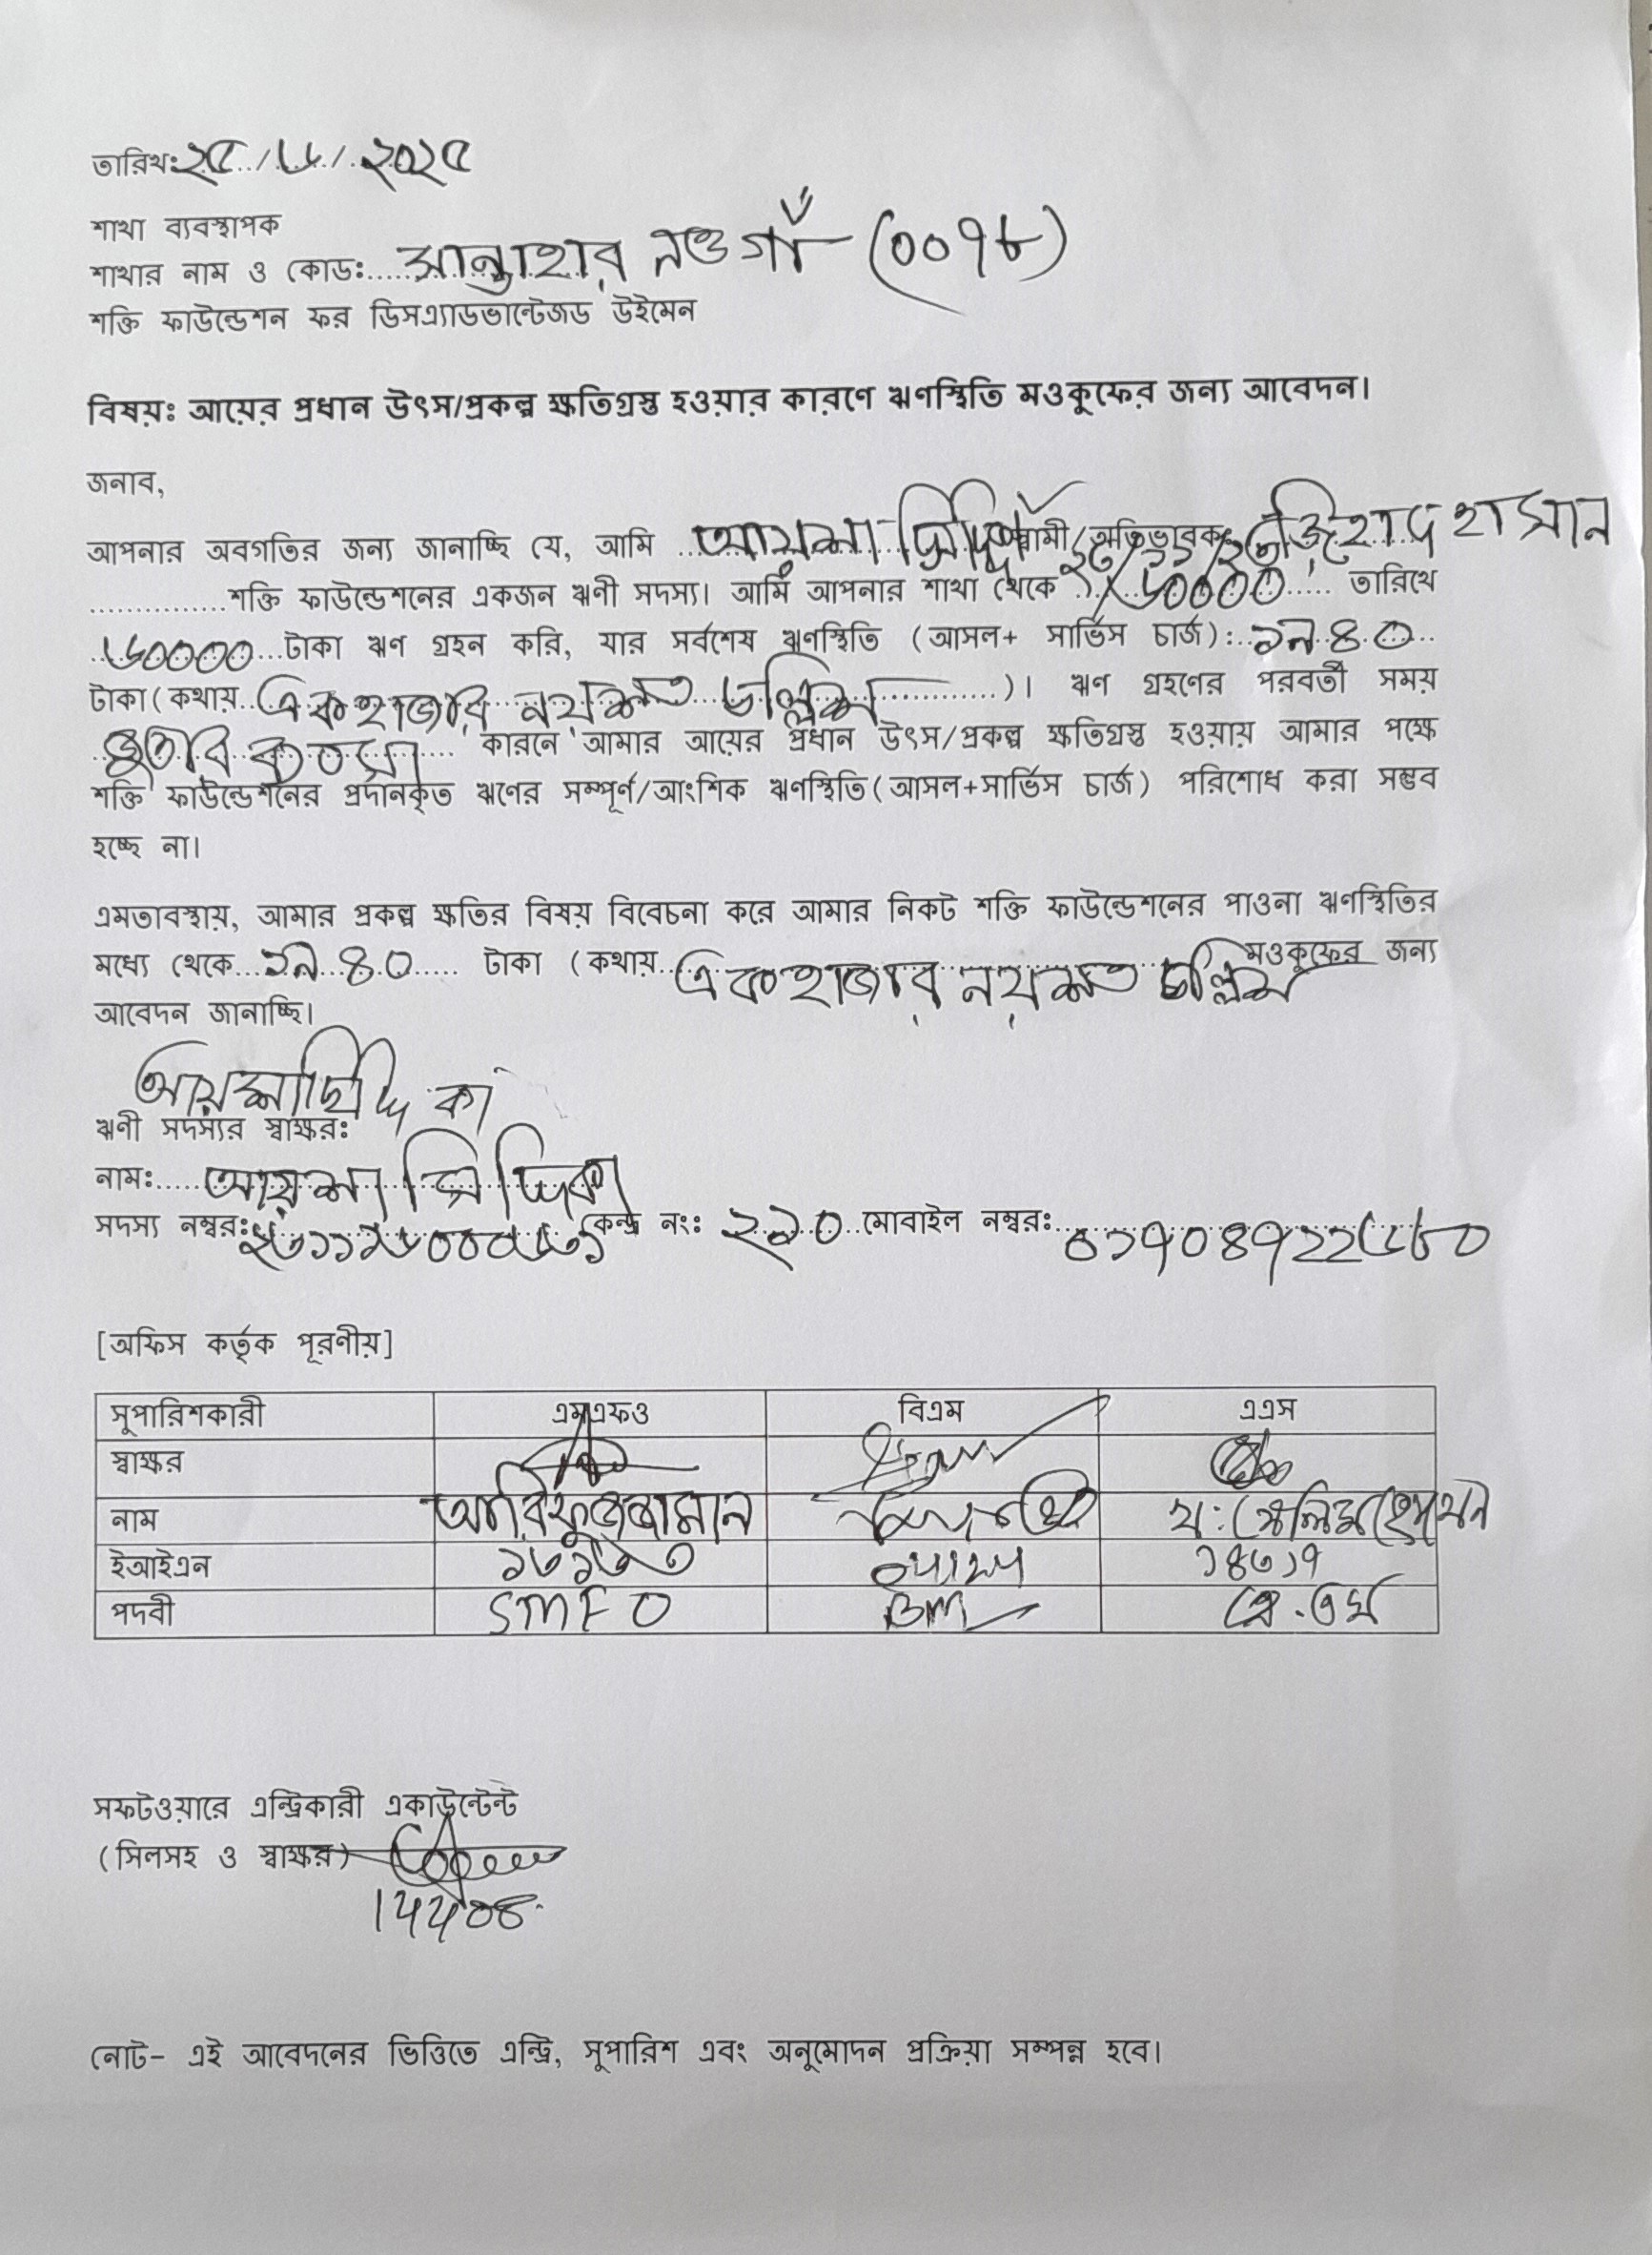 তারিখঃ ২৫/৬/২০২৫
শাখা ব্যবস্থাপক
শাখার নাম ও কোডঃ সান্তাহার নওগাঁ (০০৭৮)
শক্তি ফাউন্ডেশন ফর ডিসএ্যাডভান্টেজড উইমেন
বিষয়ঃ আয়ের প্রধান উৎস/প্রকল্প ক্ষতিগ্রস্ত হওয়ার কারণে ঋণস্থিতি মওকুফের জন্য আবেদন।
জনাব,
আপনার অবগতির জন্য জানাচ্ছি যে, আমি আয়শা সিদ্দিকা স্বামী/অভিভাবকঃ জিহাদ হাসান
শক্তি ফাউন্ডেশনের একজন ঋণী সদস্য। আমি আপনার শাখা থেকে তারিখে
৬০০০০ টাকা ঋণ গ্রহন করি, যার সর্বশেষ ঋণস্থিতি (আসল+ সার্ভিস চার্জ): ১৯৪০
টাকা(কথায় একহাজার নয়শত চল্লিশ)। ঋণ গ্রহণের পরবর্তী সময়
কারনে আমার আয়ের প্রধান উৎস/প্রকল্প ক্ষতিগ্রস্ত হওয়ায় আমার পক্ষে
শক্তি ফাউন্ডেশনের প্রদানকৃত ঋণের সম্পূর্ণ/আংশিক ঋণস্থিতি(আসল+সার্ভিস চার্জ) পরিশোধ করা সম্ভব
হচ্ছে না।
এমতাবস্থায়, আমার প্রকল্প ক্ষতির বিষয় বিবেচনা করে আমার নিকট শক্তি ফাউন্ডেশনের পাওনা ঋণস্থিতির
মধ্যে থেকে ১৯৪০ টাকা (কথায় একহাজার নয়শত চল্লিশ মওকুফের জন্য
আবেদন জানাচ্ছি।
আয়শা ছিদ্দিকা
ঋণী সদস্যর স্বাক্ষরঃ
নামঃ আয়শা সিদ্দিকা
সদস্য নম্বরঃ কেন্দ্র নংঃ ২১০ মোবাইল নম্বরঃ ০১৭০৪৭২২৫৮০
[অফিস কর্তৃক পূরণীয়]
সুপারিশকারী এমএফও বিএম এএস
স্বাক্ষর
নাম আরিফুজ্জামান
ইআইএন ১৪৩১৭
পদবী SMFO BM
সফটওয়ারে এন্ট্রিকারী একাউন্টেন্ট
(সিলসহ ও স্বাক্ষর)
নোট- এই আবেদনের ভিত্তিতে এন্ট্রি, সুপারিশ এবং অনুমোদন প্রক্রিয়া সম্পন্ন হবে।